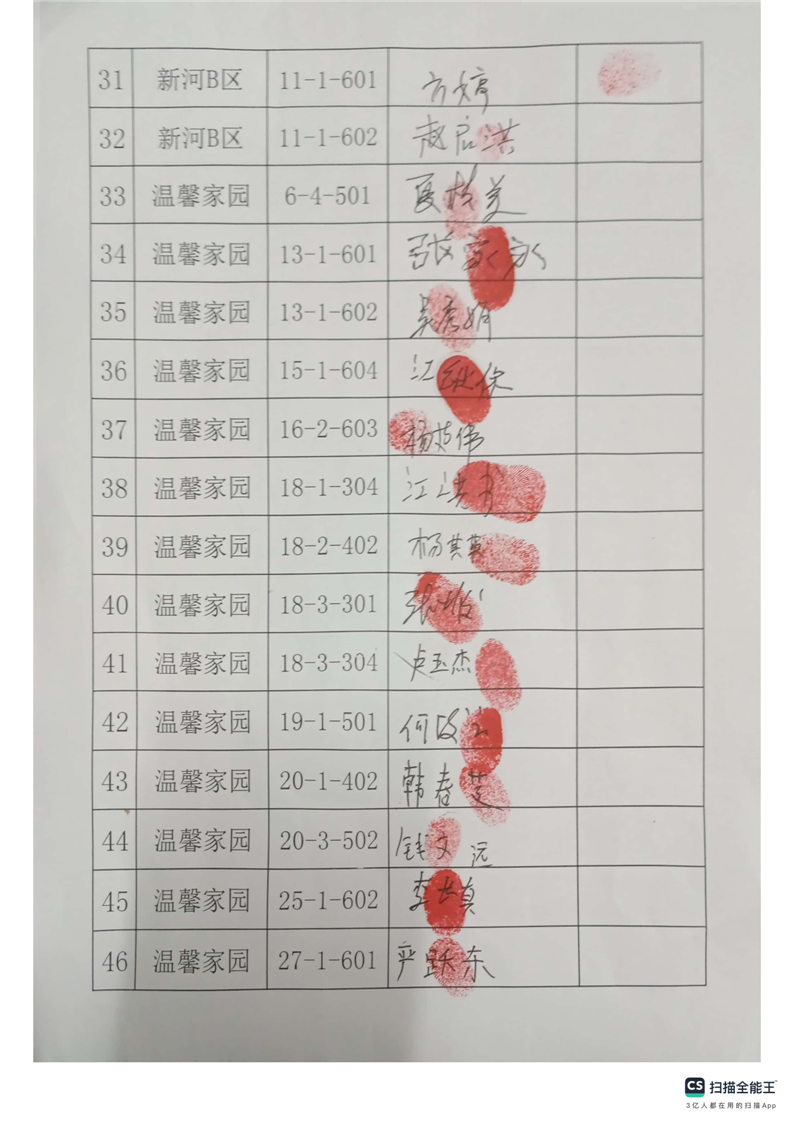 31 新河B区 11-1-601 方婷
32 新河B区 11-1-602 赵启洪
33 温馨家园 6-4-501 夏桂美
34 温馨家园 13-1-601 张家永
35 温馨家园 13-1-602 吴彦娟
36 温馨家园 15-1-604 江
37 温馨家园 16-2-603 杨志伟
38 温馨家园 18-1-304 江
39 温馨家园 18-2-402 杨其英
40 温馨家园 18-3-301 张
41 温馨家园 18-3-304 卢玉杰
42 温馨家园 19-1-501 何
43 温馨家园 20-1-402 韩春芝
44 温馨家园 20-3-502 钱文远
45 温馨家园 25-1-602 李长真
46 温馨家园 27-1-601 严跃东
CS 扫描全能王
3亿人都在用的扫描App